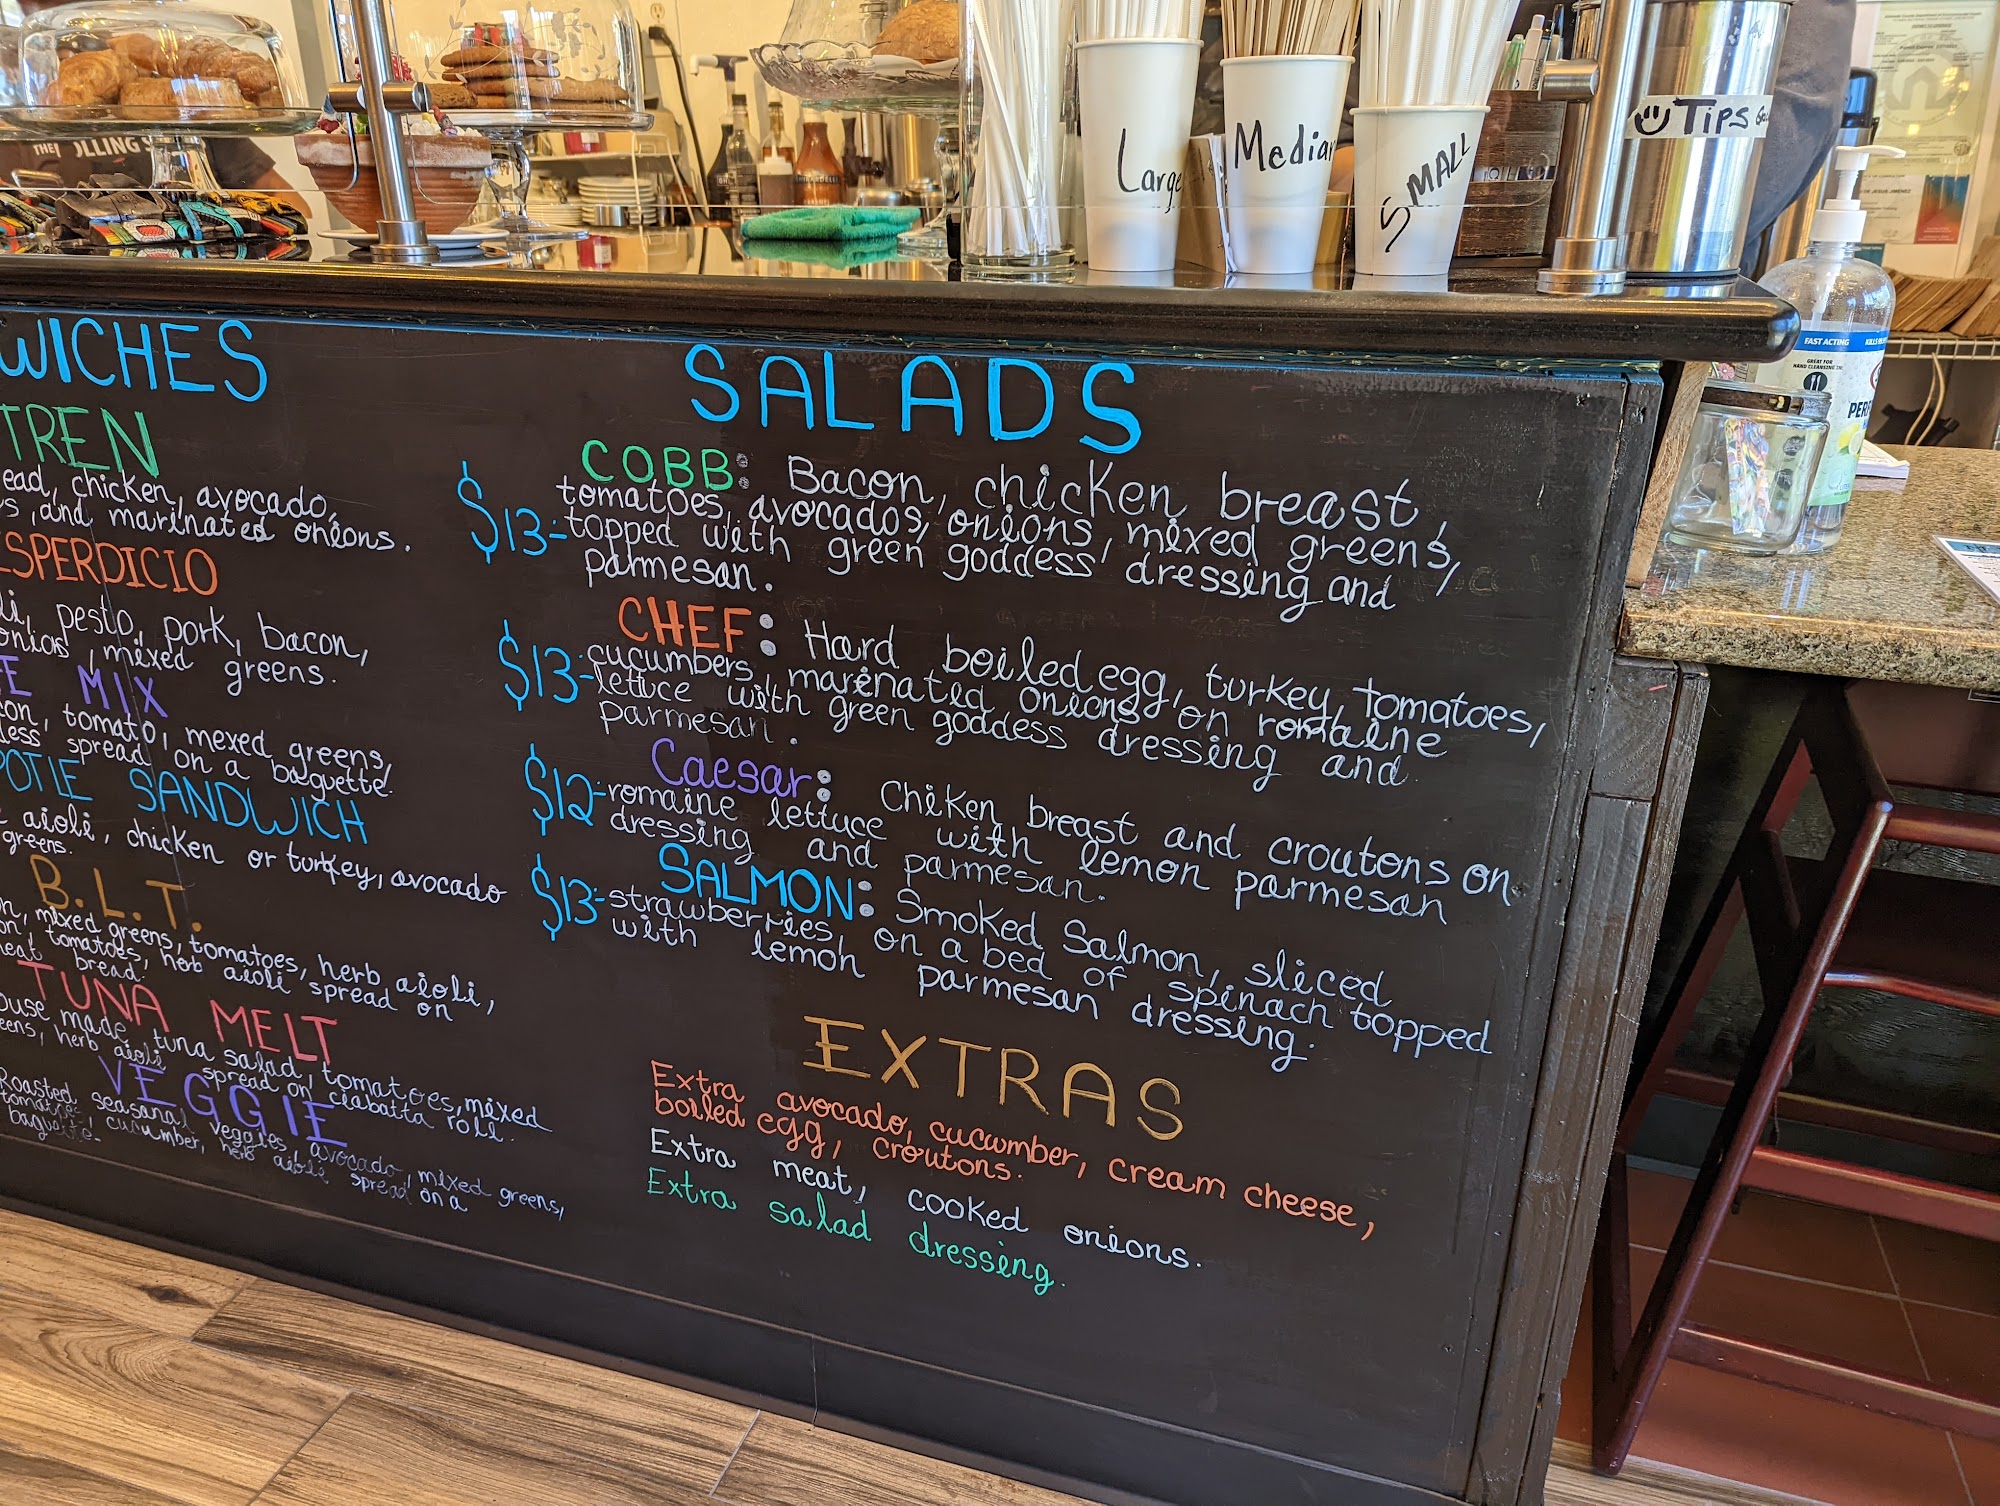 Large
Median
SMALL
TIPS
FAST ACTING
GREAT FOR
WICHES
TREN
ead, chicken, avocado,
s, and marinated onions.
ESPERDICIO
li, pesto, pork, bacon,
mixed greens.
FE MIX
con, tomato, mexed greens,
less spread on a baguette.
POTLE SANDWICH
aioli, chicken or turkey, avocado
greens.
B.L.T.
on, mixed greens, tomatoes, herb aioli,
on, tomatoes, herb aioli spread on
heat bread.
TUNA MELT
ouse made tuna salad, tomatoes, mixed
eens, herb aioli spread on ciabatta roll.
VEGGIE
Roasted seasanal veggies, avocado, mixed greens,
tomatoes, cucumber, herb aioli spread on a
baguette.
SALADS
COBB: Bacon, chicken breast,
$13- tomatoes, avocados, onions, mixed greens,
topped with green goddess dressing and
parmesan.
CHEF: Hard boiled egg, turkey, tomatoes,
$13- cucumbers, marinated onions on romaine
lettuce with green goddess dressing and
parmesan.
Caesar: Chiken breast and croutons on
$12- romaine lettuce with lemon parmesan
dressing and parmesan.
SALMON: Smoked Salmon, sliced
$13- strawberries, on a bed of spinach topped
with lemon parmesan dressing.
EXTRAS
Extra avocado, cucumber, cream cheese,
boiled egg, croutons.
Extra meat, cooked onions.
Extra salad dressing.